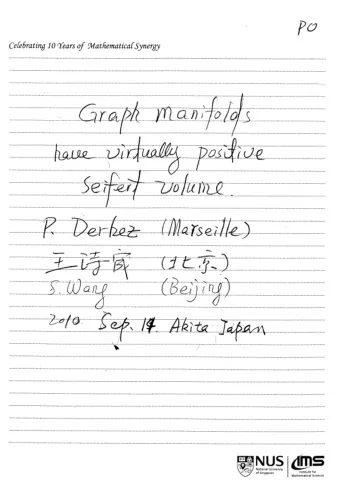 P0
Celebrating 10 Years of Mathematical Synergy
Graph manifolds
have virtually positive
Seifert volume.
P. Derbez (Marseille)
王诗宬 (北京)
S. Wang (Beijing)
2010 Sep. 14. Akita Japan
NUS
National University
of Singapore
IMS
Institute for
Mathematical Sciences